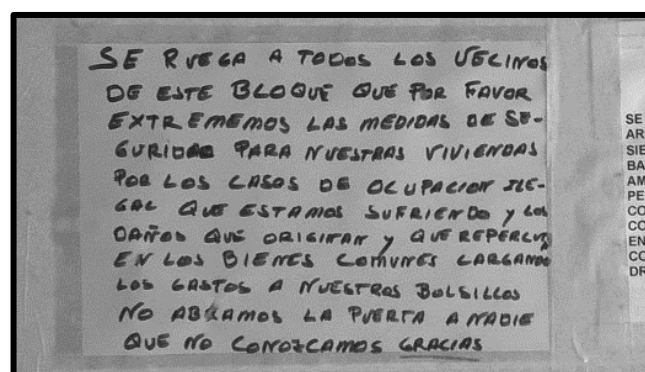 SE RUEGA A TODOS LOS VECINOS
DE ESTE BLOQUE QUE POR FAVOR
EXTREMEMOS LAS MEDIDAS DE SE-
GURIDAD PARA NUESTRAS VIVIENDAS
POR LOS CASOS DE OCUPACION ILE-
GAL QUE ESTAMOS SUFRIENDO Y LOS
DAÑOS QUE ORIGINAN Y QUE REPERCUT
EN LOS BIENES COMUNES CARGANDO
LOS GASTOS A NUESTROS BOLSILLOS
NO ABRAMOS LA PUERTA A NADIE
QUE NO CONOZCAMOS GRACIAS
SE
AR
SIE
BA
AM
PE
CO
CO
EN
CO
DR